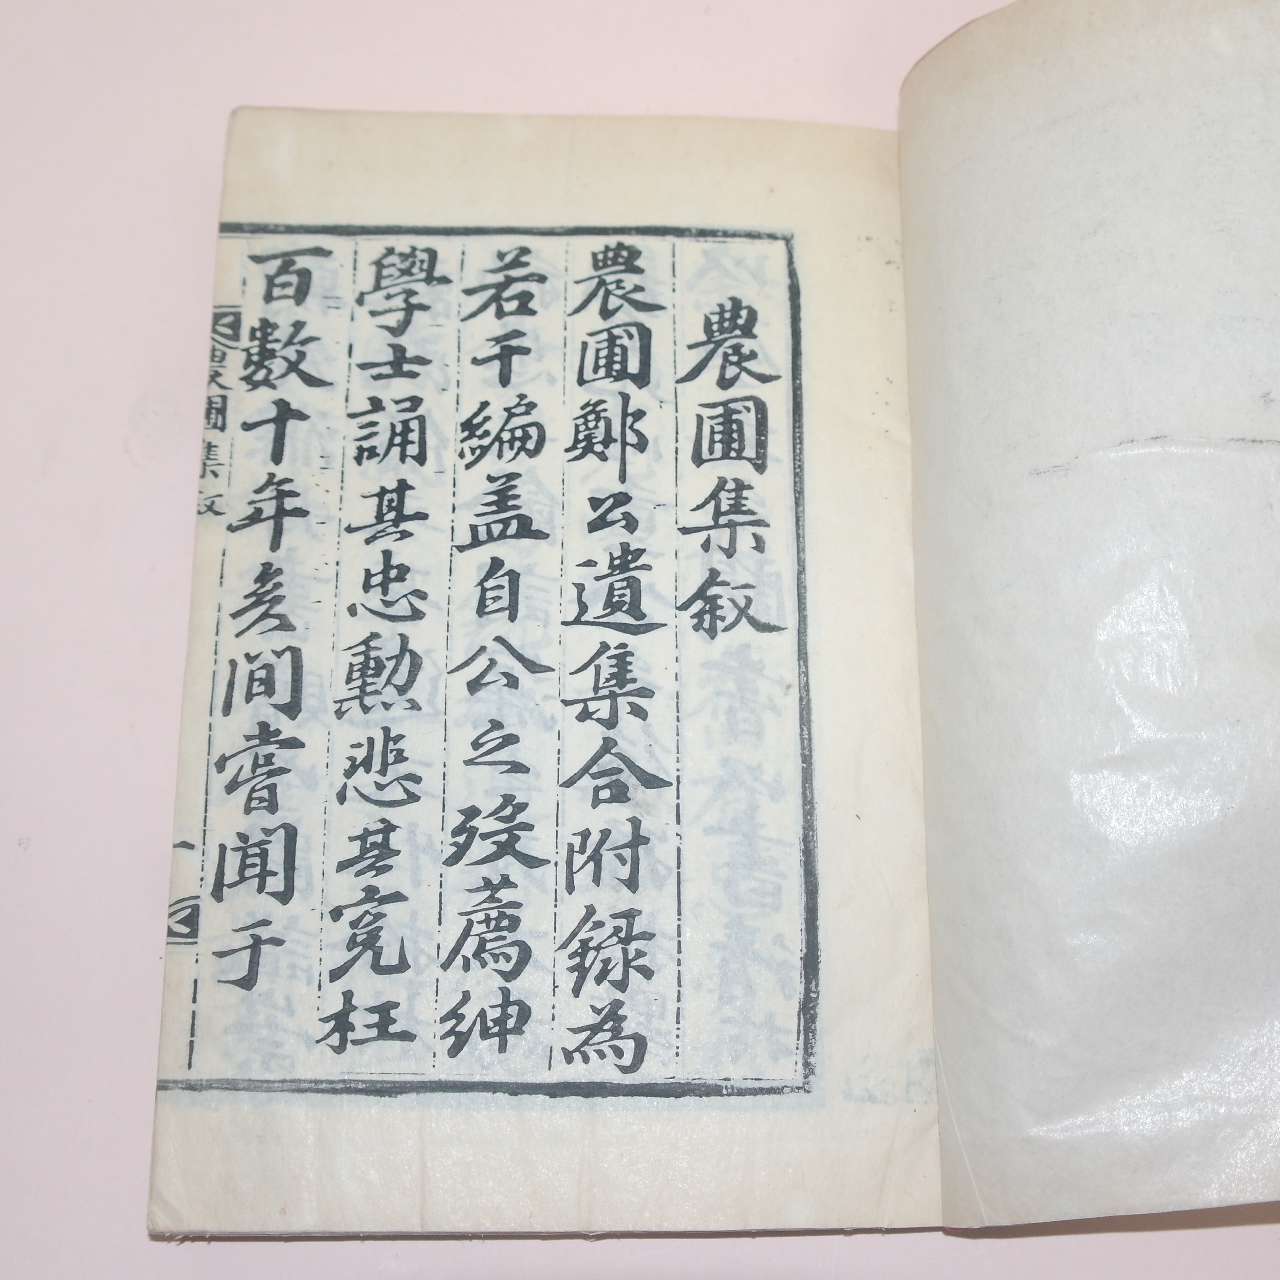 農圃集敘
農圃鄭公遺集合附録為
若干編盖自公之歿薦紳
學士誦其忠勳悲其寃枉
百數十年矣間嘗聞于
農圃集敘
一